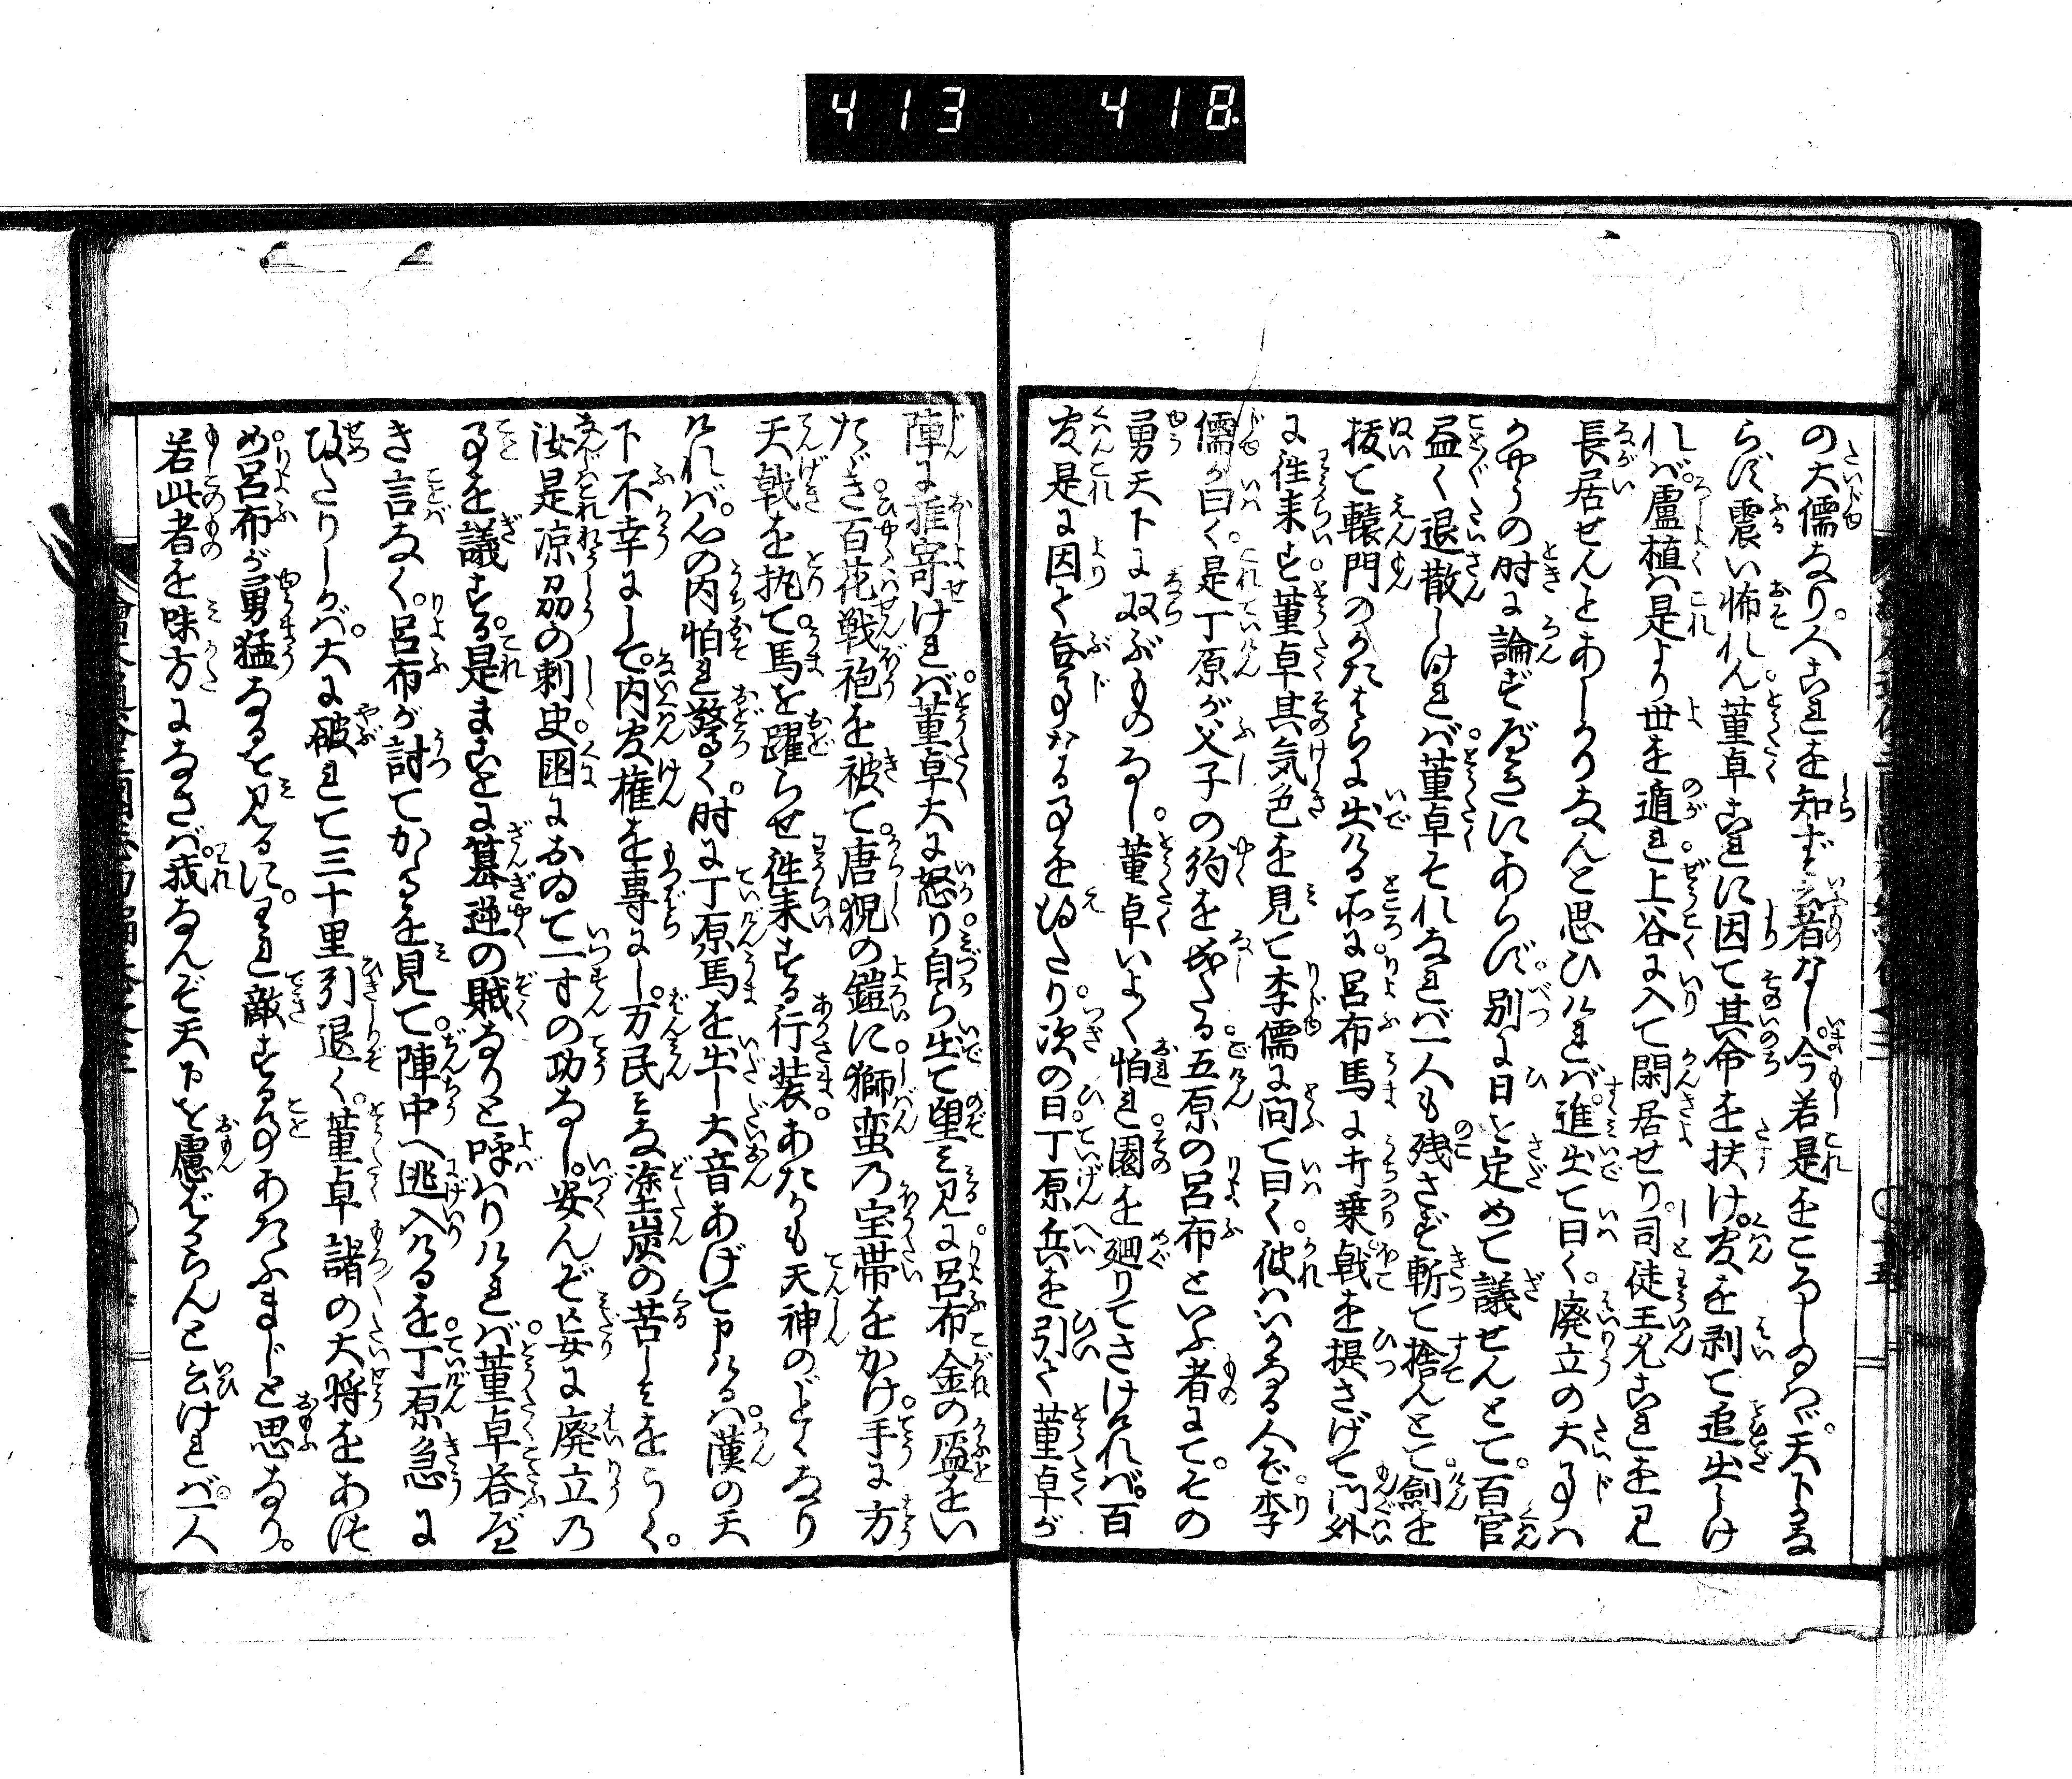 413 418
の大儒なり。人これを知ずと云者なし。今若是をころしゐはゞ。天下みな
らず震い怖れん。董卓これに因て其命を扶け。官を剥て追出しけ
れば。盧植は是より世を遁れ上谷に入て閑居せり。司徒王允これを見
長居せんとあしかりなんと思ひければ。進出て曰く。廃立の大事は
かやうの時に論ずべきにあらず。別に日を定めて議せんとて。百官
尽く退散しければ。董卓それなれば一人も残さず斬て捨んとて。剣を
抜て轅門のかたはらに出ける所に。呂布馬に打乗。戟を提さげて門外
に往来す。董卓其気色を見て李儒に問て曰く。彼はいかなる人ぞ。李
儒が曰く。是丁原が父子の約をなしたる。五原の呂布といふ者にて。その
勇天下に双ぶものなし。董卓いよ〱怕れ。園を廻りてさけければ。百
官是に因て無事なる事を得たり。次の日。丁原兵を引て董卓が
陣に推寄ければ。董卓大に怒り。自ら出て望み見るに。呂布金の盔をい
たゞき。百花戦袍を被て。唐猊の鎧に。獅蛮乃宝帯をかけ。手に方
天戟を執て。馬を躍らせ往来する行装。あたかも天神のごとくなり
ければ。心の内怕れ驚く。時に丁原馬を出し大音あげて申けるは。漢の天
下不幸にして。内官権を専にし。万民みな塗炭の苦しみをうく。
汝是凉州の刺史。国におゐて一寸の功なし。安んぞ妄に廃立乃
事を議する。是まことに簒逆の賊なりと呼はりければ。董卓答べ
き言なく。呂布が討てかゝるを見て。陣中へ逃入けるを。丁原急に
攻たりしかば。大に破れて三十里引退く。董卓諸の大将をあつ
め。呂布が勇猛なるを見るに。われ敵する事あたふまじと思なり。
若此者を味方になさば。我なんぞ天下を慮ばからんと云ければ。一人